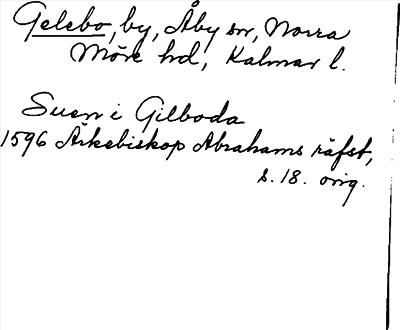 Gelebo, by, Åby sn, Norra
Möre hd, Kalmar l.
Suen i Gilboda
1596 Ärkebiskop Abrahams räfst,
s. 18. orig.